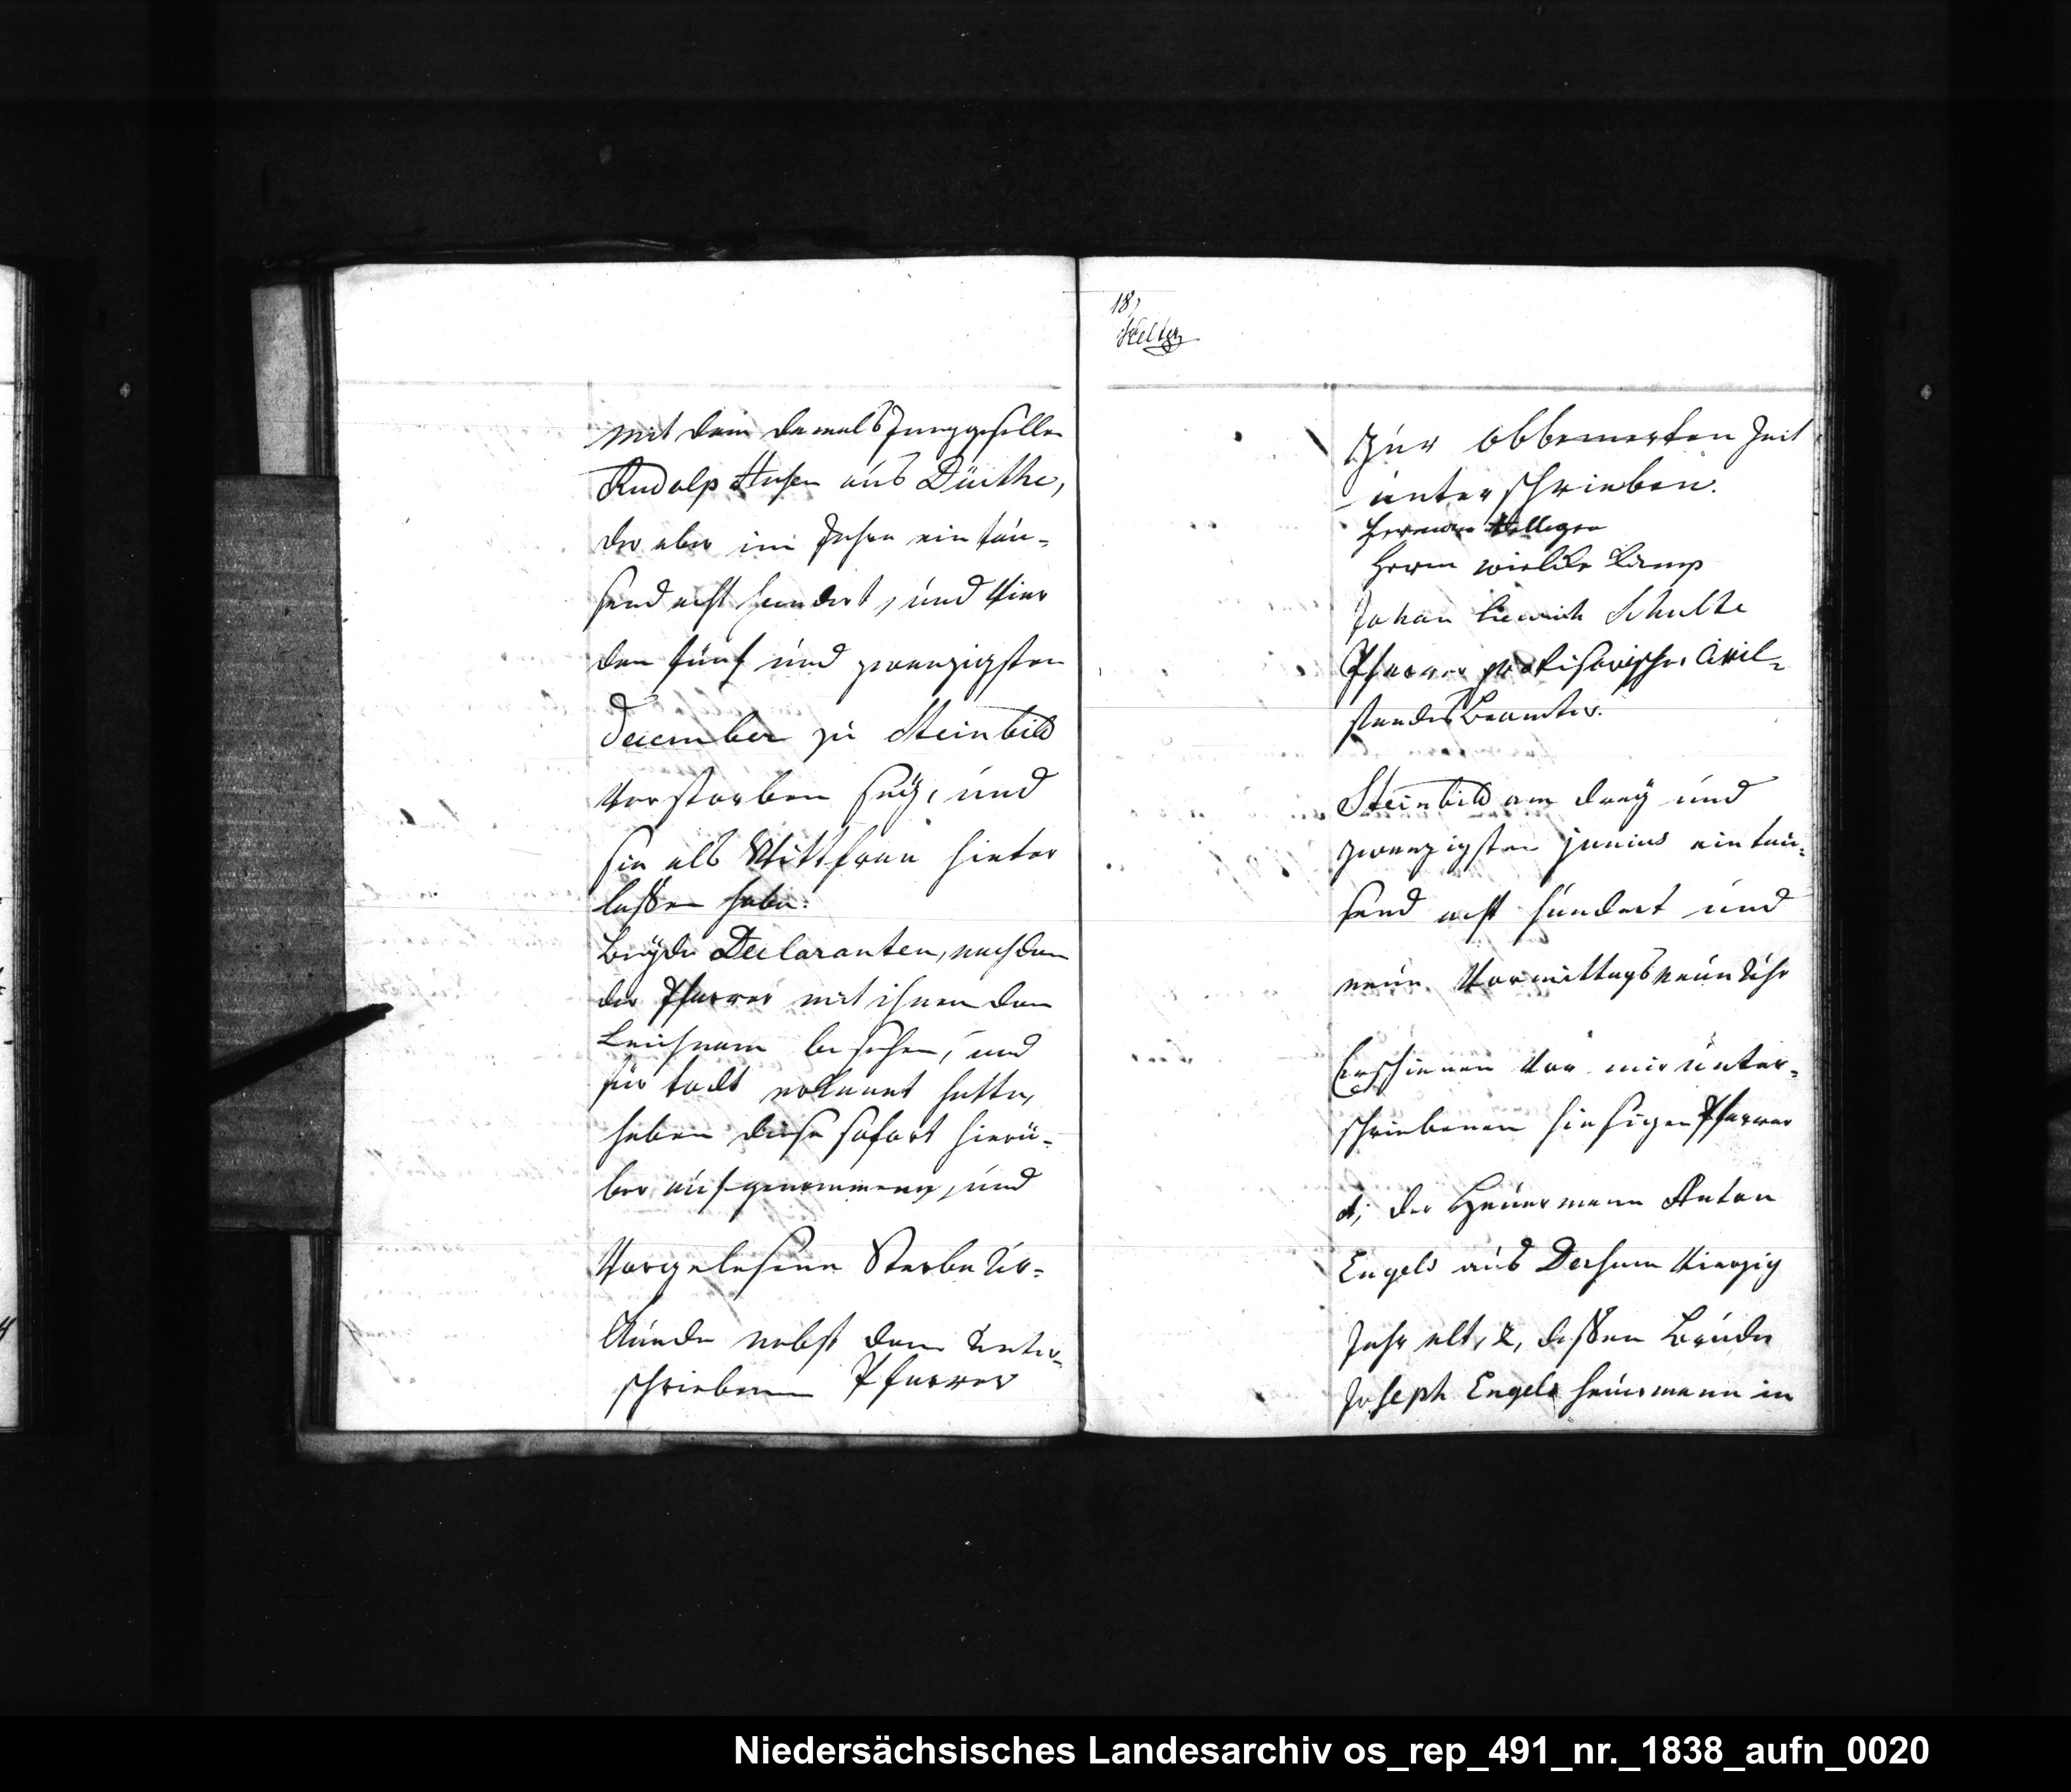 mit dem damals Junggesellen
Rudolp Husen aus Dürthe,
der aber im Jahre ein tau-
send acht hundert, und vier
den fünf und zwanzigsten
December zu Steinbild
verstorben seÿ, und
sie als Wittfrau hinter
laßen habe.
Beÿde Declaranten, nachdem
der Pfarrer mit ihnen den
Leichnam besehen, und
für todt erkannt hatte,
haben diese sofort hierü-
ber aufgenommene, und
vorgelesene Sterbe Ur-
kunde nebst dem unter-
schriebenen Pfarrer
18,
zur obbemerkten Zeit
unterschrieben.
Herman
Herm
Johan Henrich Schulte
Pfarrer provisorischer Civil-
standes Beamter.
Steinbild am dreÿ und
zwanzigsten junius ein tau-
send acht hundert und
neun Vormittags neun Uhr
Erschienen vor mir unter-
schriebenen hiesigen Pfarrer
1, der Heuermann Anton
Engels aus Dersum vierzig
Jahr alt, 2, deßen Bruder
Joseph Engels heuermann in
Niedersächsisches Landesarchiv os_rep_491_nr._1838_aufn_0020